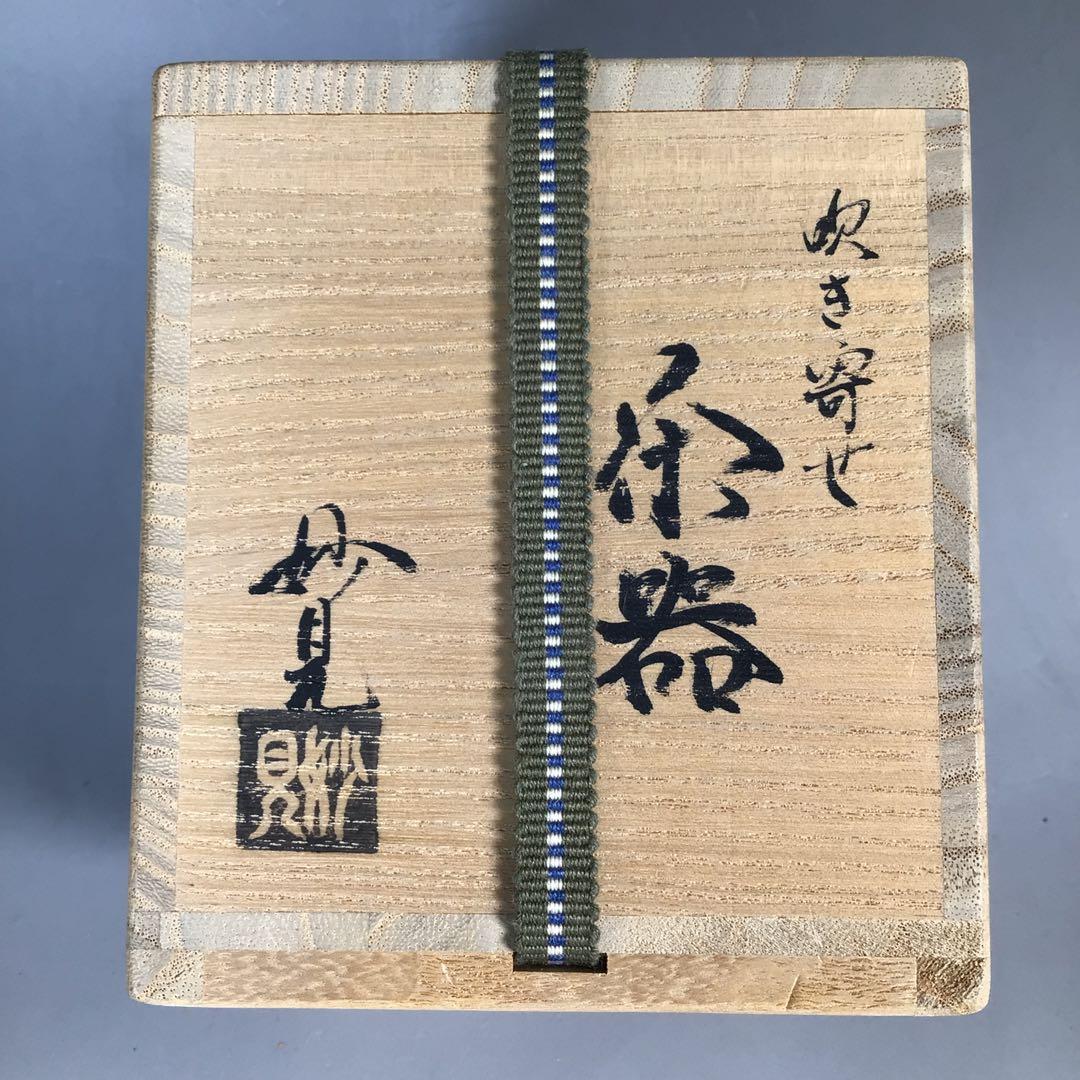 吹き寄せ
茶器
妙見
妙見